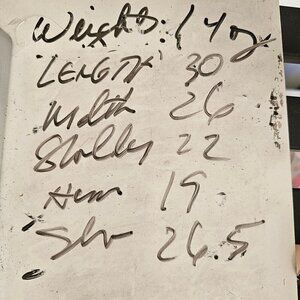 Weight: 14oz
LENGTH 30
Width 26
22
Hem 19
Slv 26.5